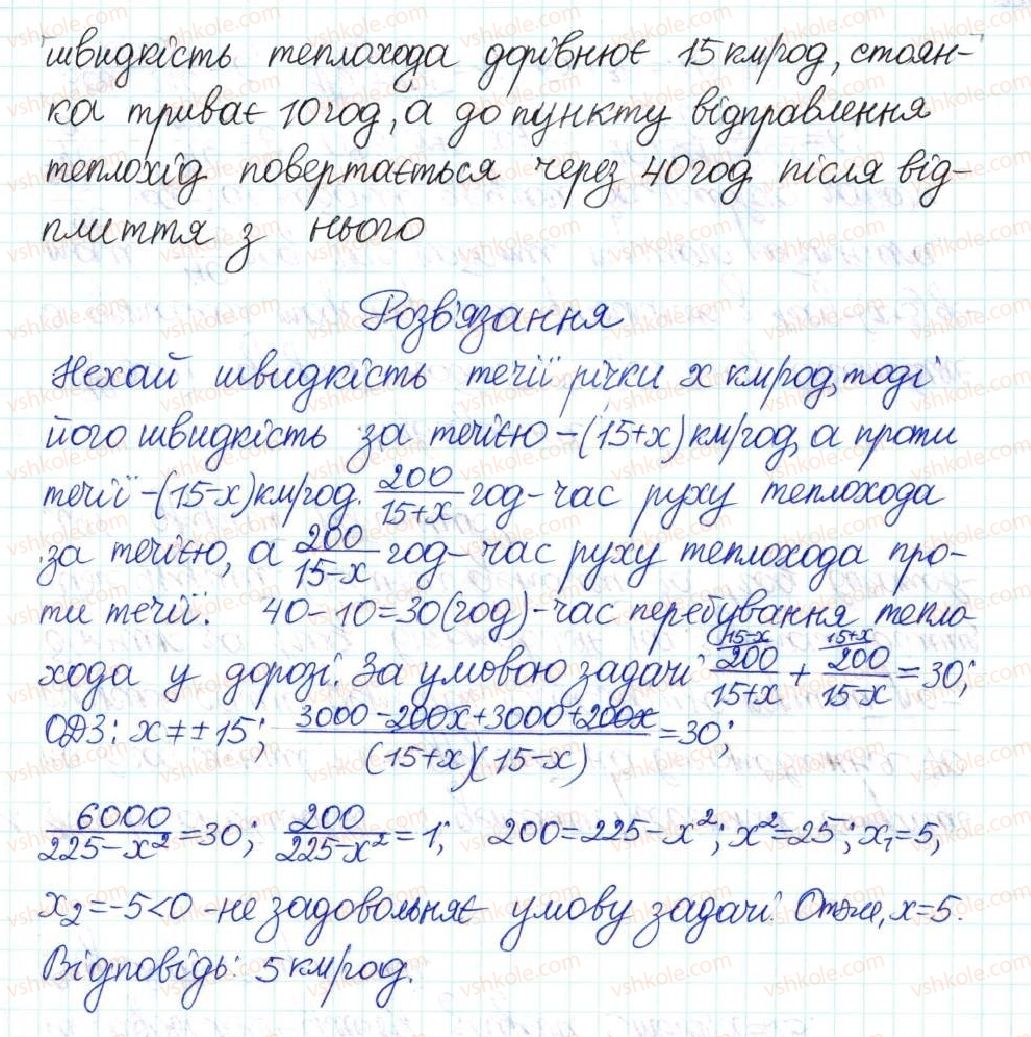 швидкість теплохода дорівнює 15 км/год, стоян-
ка триває 10 год, а до пункту відправлення
теплохід повертається через 40 год після від-
плиття з нього
Розв'язання
Нехай швидкість течії річки x км/год, тоді
його швидкість за течією – (15+x) км/год, а проти
течії – (15-x) км/год. 200/(15+x) год – час руху теплохода
за течією, а 200/(15-x) год – час руху теплохода про-
ти течії. 40-10=30 (год) – час перебування тепло-
хода у дорозі. За умовою задачі 15-x 200/(15+x) + 15+x 200/(15-x) = 30;
ОДЗ: x≠±15; (3000-200x+3000+200x)/((15+x)(15-x)) = 30;
6000/(225-x²) = 30; 200/(225-x²) = 1; 200=225-x²; x²=25; x₁=5;
x₂=-5<0 – не задовольняє умову задачі. Отже, x=5.
Відповідь: 5 км/год.
vshkole.com